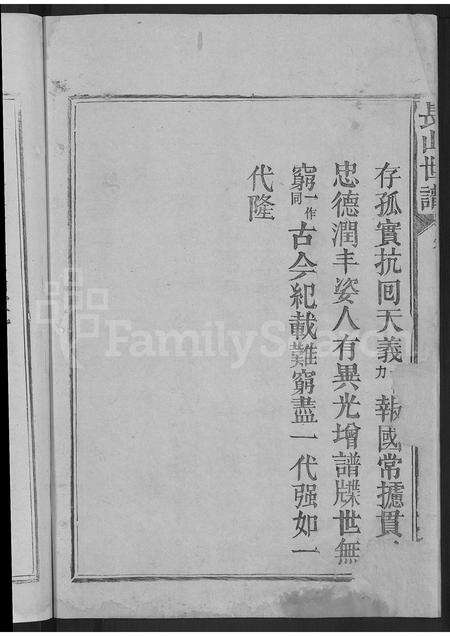 長山世譜
存孤實抗回天義 報國常攄貫
忠德潤丰姿人有異光增譜牒世無
窮一作同古今紀載難窮盡一代强如一
代隆
FamilySearch